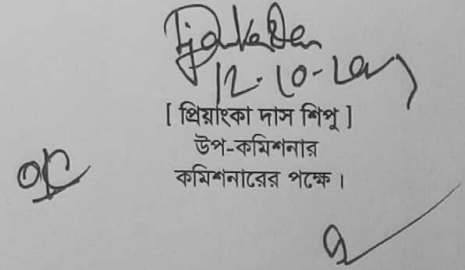 12.10-20
[ প্রিয়াংকা দাস শিপু ]
উপ-কমিশনার
কমিশনারের পক্ষে ।